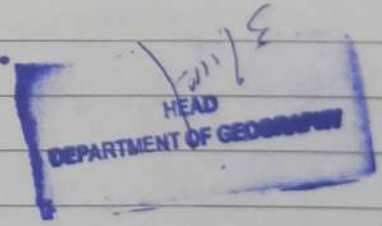 HEAD
DEPARTMENT OF GEOGRAPHY